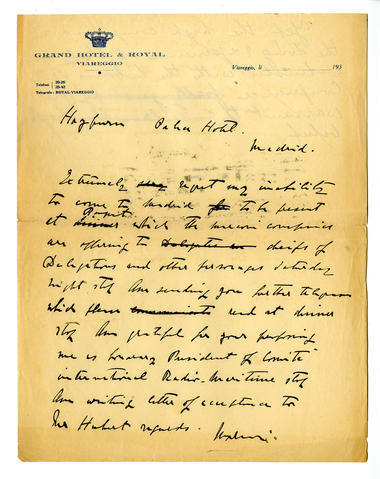 GRAND HOTEL & ROYAL
VIAREGGIO
Viareggio, li 193
Telefoni 20-20
20-40
Telegrafo: ROYAL-VIAREGGIO
Palace Hotel.
Madrid.
Extremely regret my inability
to come to Madrid to be present
at which the Marconi companies
are offering to chiefs of
Delegations and other personages Saturday
night stop Am sending you further telegram
which please read at dinner
stop Am grateful for your proposing
me as honorary President of Comité
international Radio-Maritime stop
Am writing letter of acceptance to
Mr Hubert regards. Marconi.